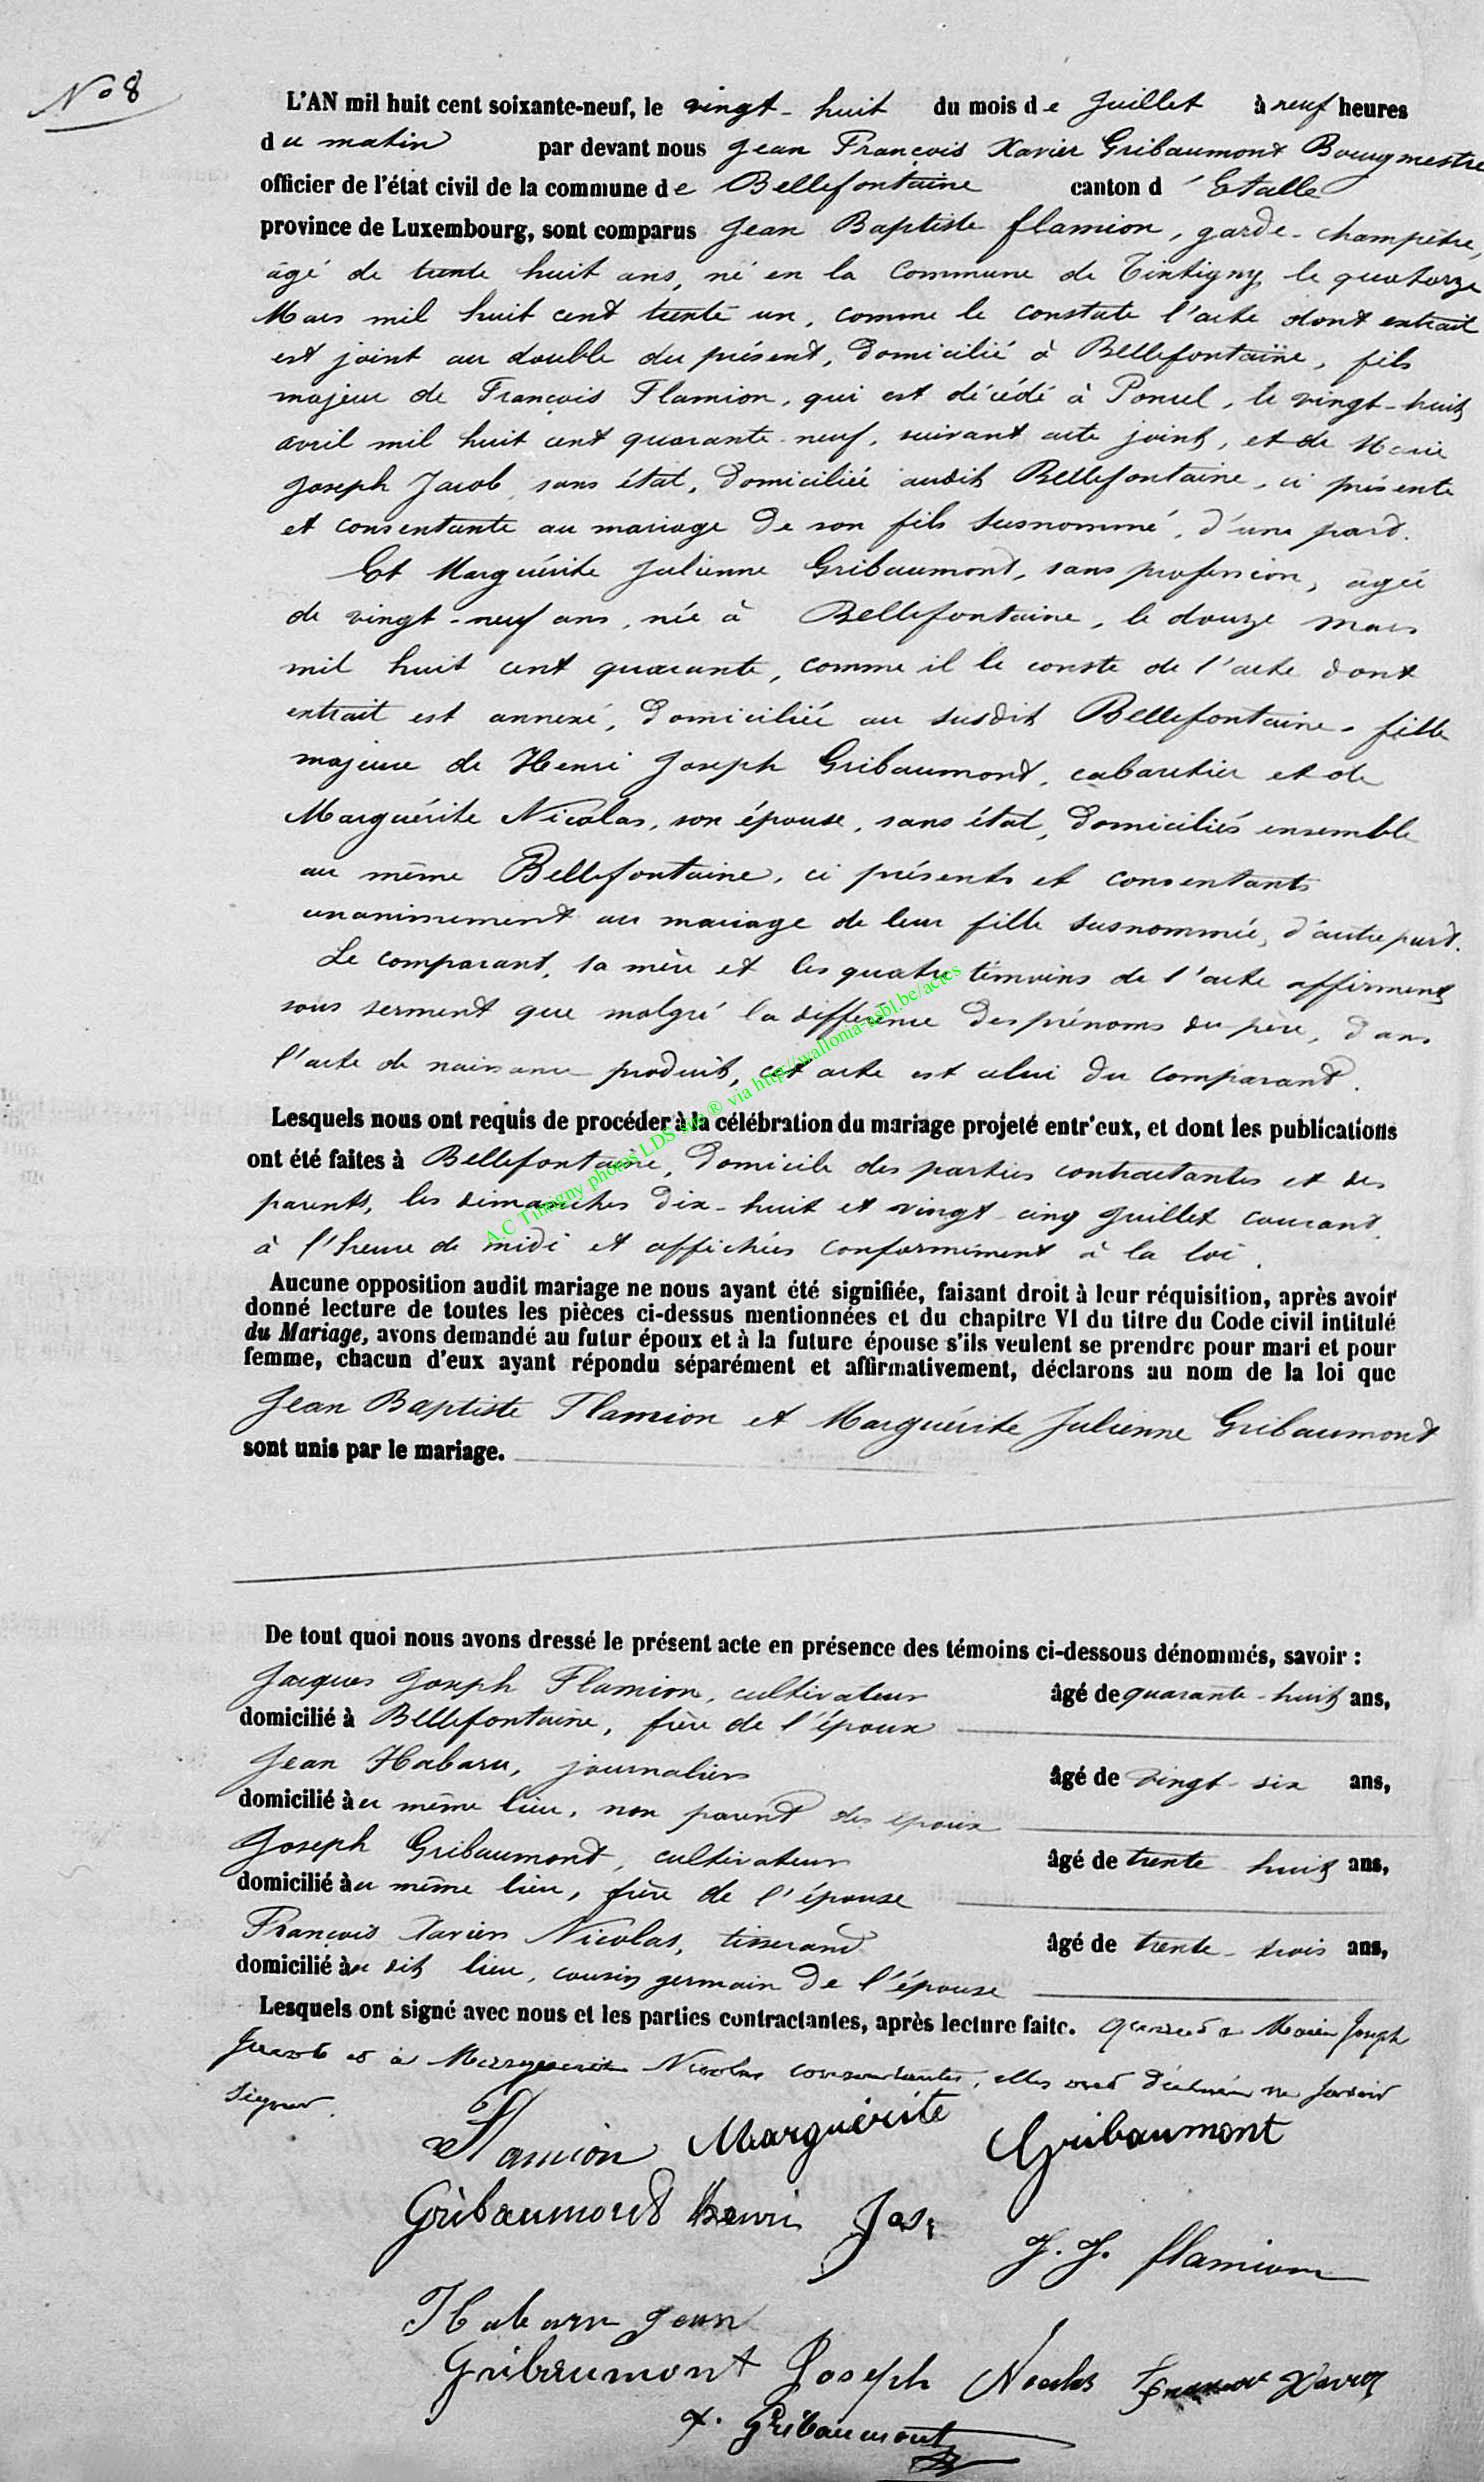 No 8
L'AN mil huit cent soixante-neuf, le vingt-huit du mois de Juillet à neuf heures
du matin par devant nous Jean François Xavier Gribaumont Bourgmestre
officier de l'état civil de la commune de Bellefontaine canton d'Etalle
province de Luxembourg, sont comparus Jean Baptiste flamion, garde-champêtre,
âgé de trente huit ans, né en la Commune de Tintigny le quatorze
Mars mil huit cent trente un, comme le constate l'acte dont extrait
est joint au double du présent, domicilié à Bellefontaine, fils
majeur de François Flamion, qui est décédé à Poncel, le vingt-huit
avril mil huit cent quarante-neuf, suivant acte joint, et de Marie
Joseph Jacob, sans état, domiciliée audit Bellefontaine, ci présente
et consentante au mariage de son fils susnommé, d'une part.
Et Marguérite Julienne Gribaumont, sans profession, agée
de vingt-neuf ans, née à Bellefontaine, le douze mars
mil huit cent quarante, comme il le conste de l'acte dont
extrait est annexé, domiciliée au susdit Bellefontaine, fille
majeure de Henri Joseph Gribaumont, cabaretier et de
Marguérite Nicolas, son épouse, sans état, domiciliés ensemble
au même Bellefontaine, ci présents et consentants
unanimement au mariage de leur fille susnommée, d'autre part.
Le comparant, sa mère et les quatre témoins de l'acte affirment
sous serment que malgré la différence des prénoms du père, dans
l'acte de naissance produit, cet acte est celui du comparant.
Lesquels nous ont requis de procéder à la célébration du mariage projeté entr'eux, et dont les publications
ont été faites à Bellefontaine, domicile des parties contractantes et des
parents, les dimanches dix-huit et vingt-cinq Juillet courant,
à l'heure de midi et affichées conformément à la loi.
A.C Tintigny photos LDS sur ® via http://wallonia-asbl.be/actes
Aucune opposition audit mariage ne nous ayant été signifiée, faisant droit à leur réquisition, après avoir
donné lecture de toutes les pièces ci-dessus mentionnées et du chapitre VI du titre du Code civil intitulé
du Mariage, avons demandé au futur époux et à la future épouse s'ils veulent se prendre pour mari et pour
femme, chacun d'eux ayant répondu séparément et affirmativement, déclarons au nom de la loi que
Jean Baptiste Flamion et Marguérite Julienne Gribaumont
sont unis par le mariage.
De tout quoi nous avons dressé le présent acte en présence des témoins ci-dessous dénommés, savoir :
Jacques Joseph Flamion, cultivateur âgé de quarante-huit ans,
domicilié à Bellefontaine, frère de l'époux
Jean Habaru, journalier âgé de vingt-six ans,
domicilié au même lieu, non parent des époux
Joseph Gribaumont, cultivateur âgé de trente huit ans,
domicilié au même lieu, frère de l'épouse
François Xavier Nicolas, tisserand âgé de trente-trois ans,
domicilié au dit lieu, cousin germain de l'épouse
Lesquels ont signé avec nous et les parties contractantes, après lecture faite. Quant à Marie Joseph
Jacob et à Marguerite Nicolas consentantes, elles ont déclaré ne savoir
signer.
Flamion Marguérite Gribaumont
Gribaumont henri Jos.
J. J. flamion
Habaru Jean
Gribaumont Joseph Nicolas François Xavier
x. Gribaumont